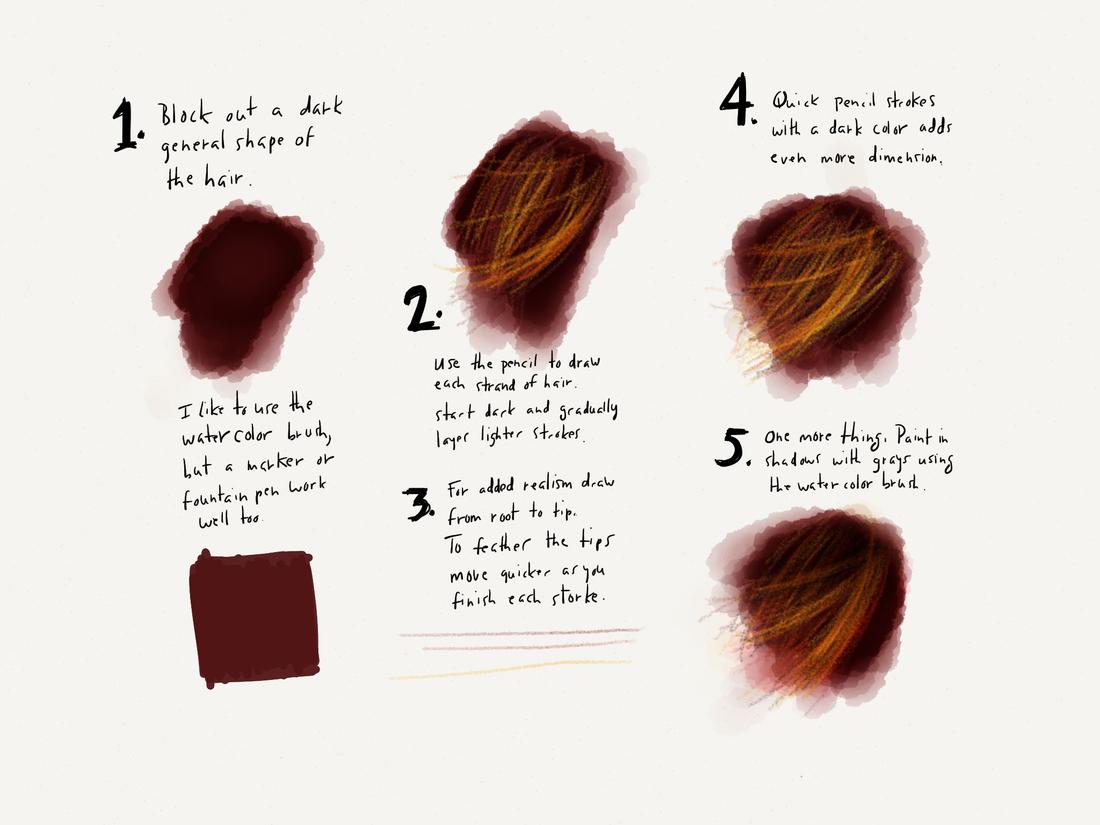 1. Block out a dark
general shape of
the hair.
I like to use the
watercolor brush,
but a marker or
fountain pen work
well too.
2.
Use the pencil to draw
each strand of hair.
start dark and gradually
layer lighter strokes.
3. For added realism draw
from root to tip.
To feather the tips
move quicker as you
finish each storke.
4. Quick pencil strokes
with a dark color adds
even more dimension.
5. One more thing. Paint in
shadows with grays using
the watercolor brush.